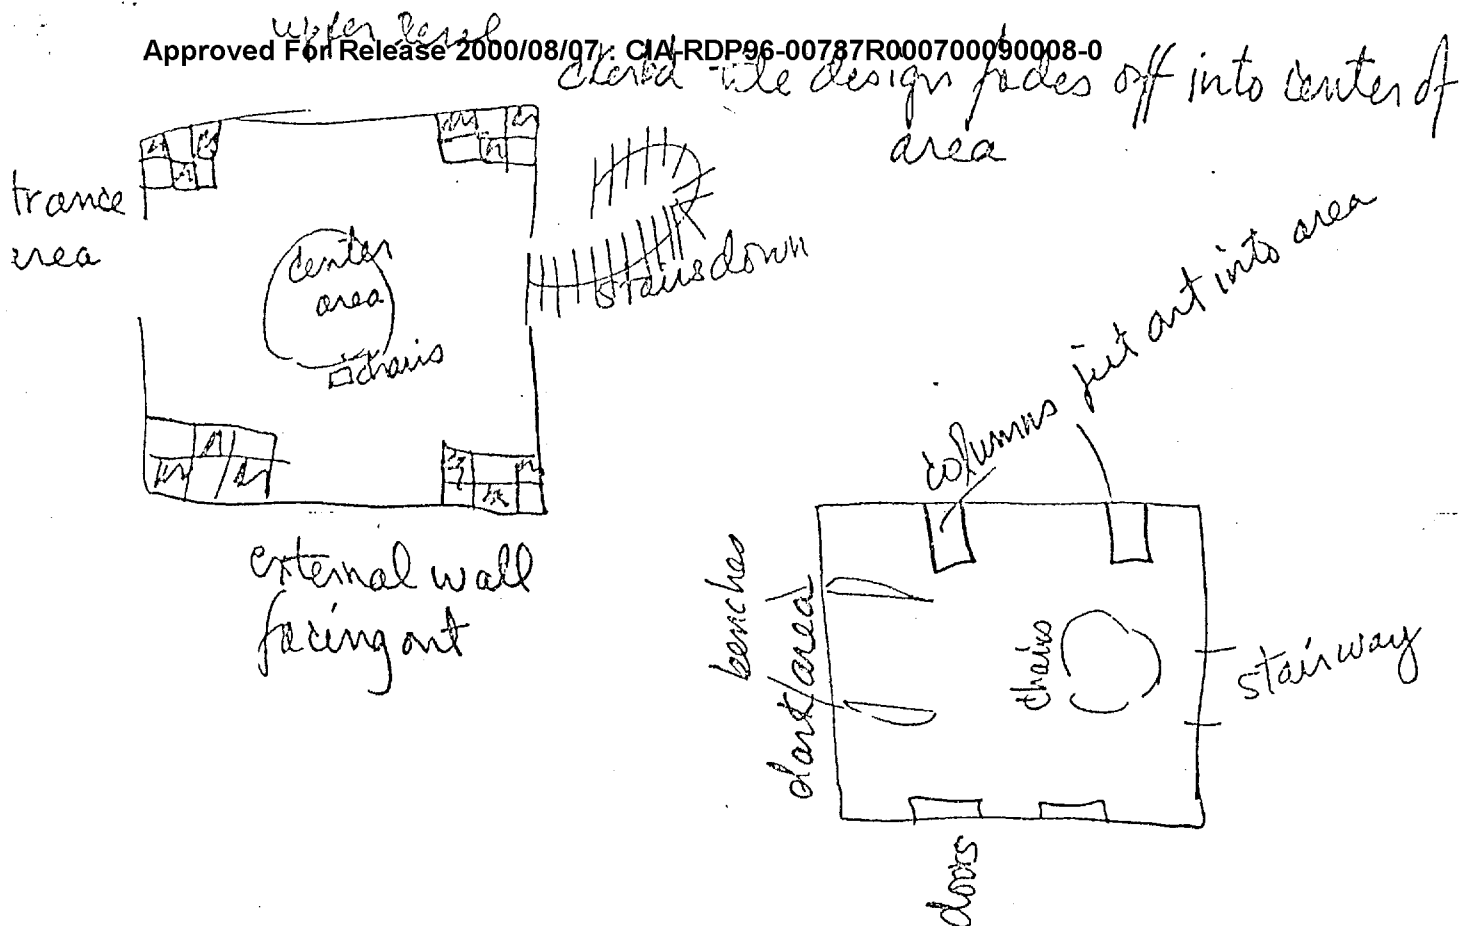 upper level
Approved For Release 2000/08/07 : CIA-RDP96-00787R000700090008-0
tile design fades off into center of
area
trance
area
center
area
chairs
stairs down
external wall
facing out
columns jut out into area
benches
dark area
chairs
stairway
doors